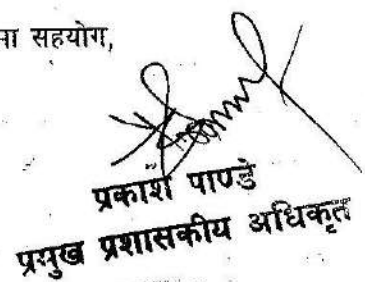 सहयोग,
प्रकाश पाण्डे
प्रमुख प्रशासकीय अधिकृत